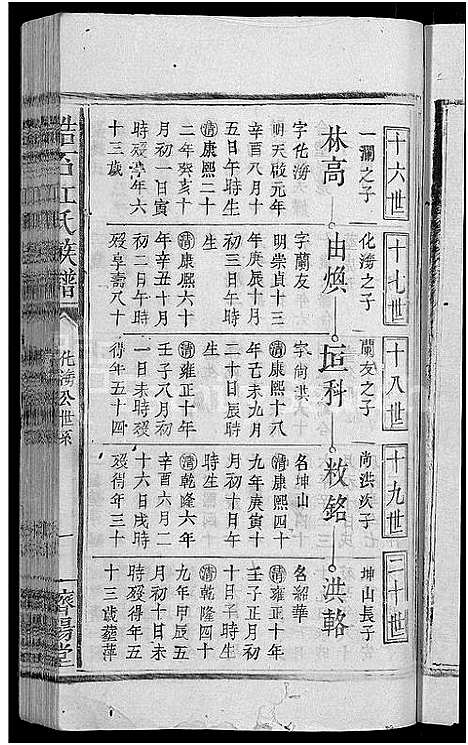 十六世
一瀾之子
林高
字化滂
明天啟元年
辛酉八月十
五日午時生
清康熙二十
二年癸亥十
月初一日寅
時歿享年六
十三歲
十七世
化滂之子
由煥
字蘭友
明崇貞十三
年庚辰十月
初三日午時
生
清康熙六十
年辛丑十月
初二日午時
歿享壽八十
十八世
蘭友之子
垣科
字尚洪
清康熙十八
年己未九月
二十日辰時
生
清雍正十年
壬子八月初
一日未時歿
得年五十四
十九世
尚洪次子
敉銘
名坤山
清康熙四十
九年庚寅十
月初十日辰
時生
清乾隆六年
辛酉六月二
十六日戌時
歿得年三十
二十世
坤山長子
洪輅
名紹華
清雍正十年
壬子正月初
十日子時生
清乾隆四十
九年甲辰五
月初十日未
時歿得年五
十三歲葬萍
浩石江氏族譜
化滂公世系
一
濟陽堂